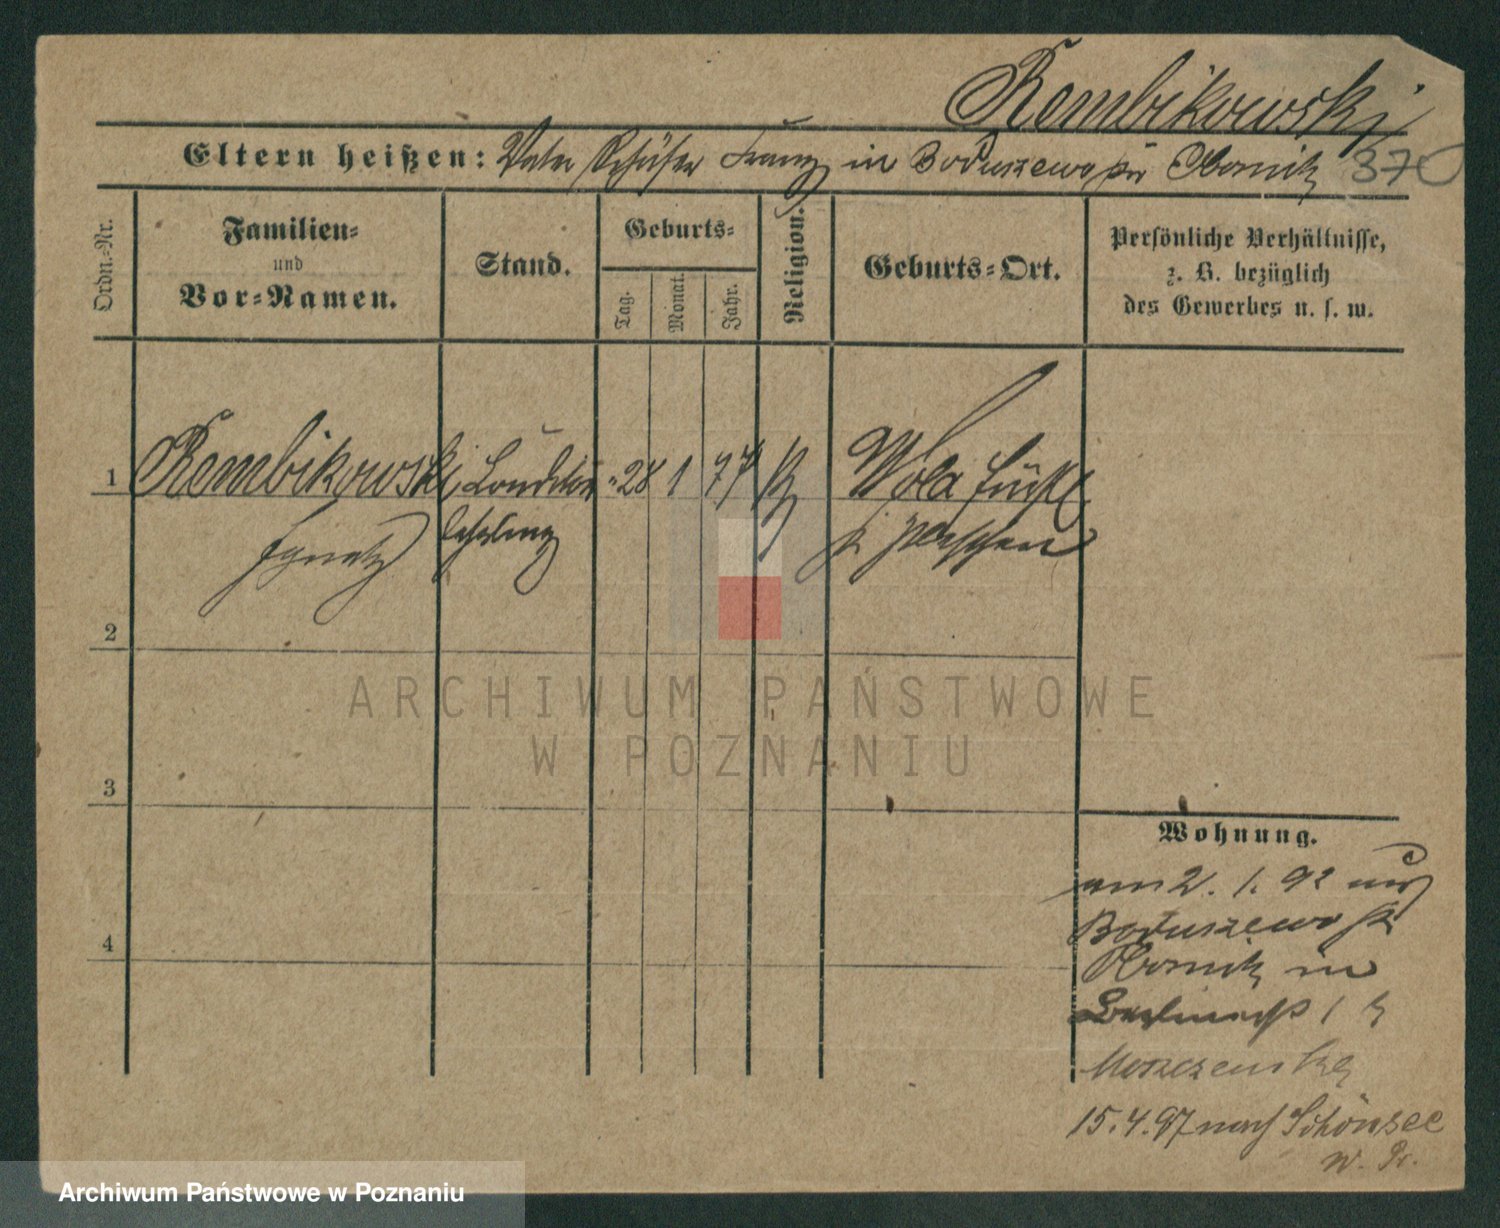 Rembikowski
Eltern heißen: Vater Schäfer Franz in Boduszewo pr Obornik 370
Ordn.-Nr.
Familien-
und
Vor-Namen.
Stand.
Geburts-
Tag.
Monat.
Jahr.
Religion.
Geburts-Ort.
Persönliche Verhältnisse,
z. B. bezüglich
des Gewerbes u. s. w.
1 Rembikowski Conditor 28 1 77 Wola
Ignatz Lehrling Pleschen
2
3
4
Wohnung.
am 2. 1. 92 aus
Boduszewo Kr
Obornik in
1
15.4.97 nach Schönsee
W. Pr.
ARCHIWUM PAŃSTWOWE
W POZNANIU
Archiwum Państwowe w Poznaniu